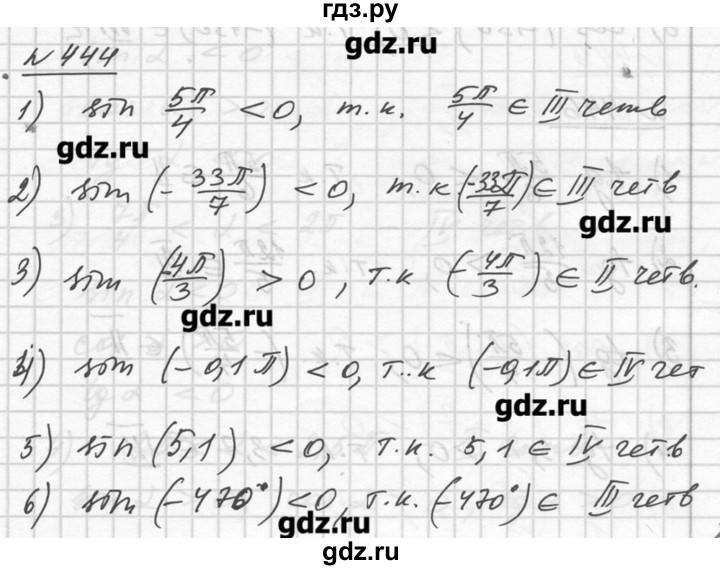 гдз.ру
gdz.ru
№ 444
1) sin 5π/4 < 0, т.к. 5π/4 ∈ III четв
gdz.ru
2) sin (-33π/7) < 0, т.к (-33π/7) ∈ III четв
gdz.ru
3) sin (-4π/3) > 0, т.к (-4π/3) ∈ II четв.
gdz.ru
4) sin (-0,1π) < 0, т.к (-0,1π) ∈ IV чет
gdz.ru
5) sin (5,1) < 0, т.к. 5,1 ∈ IV четв
6) sin (-470°) < 0, т.к. (-470°) ∈ III четв
gdz.ru
gdz.ru